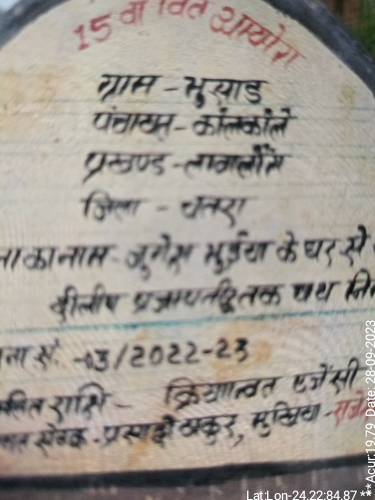 15 वां वित्त आयोग
ग्राम - भुयाड
पंचायत - कोलकोले
प्रखण्ड - लावालौंग
जिला - चतरा
का नाम - जुगेश भुईंया के घर से
दीलीप प्रजापति तक पथ
सं. -03/2022-23
राशि - क्रियान्वित एजेंसी
सेवक - प्रसादी ठाकुर, मुखिया -
Lat:Lon-24.22:84.87 ***Acur:19.79 Date: 28-09-2023